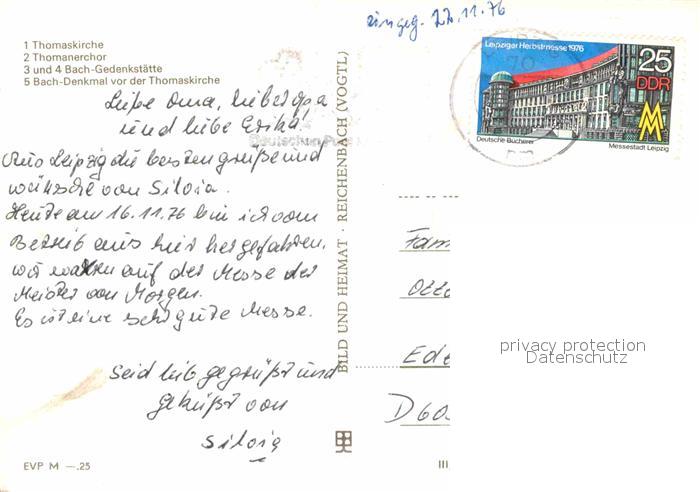 eingeg. 22.11.76
1 Thomaskirche
2 Thomanerchor
3 und 4 Bach-Gedenkstätte
5 Bach-Denkmal vor der Thomaskirche
Liebe Oma, lieber Opa
und liebe Erika,
Aus Leipzig die besten grüße und
wünsche von Silvia.
Heute am 16.11.76 bin ich vom
Betrieb aus hier her gefahren.
wir waren auf der Messe der
Meister von Morgen.
Es ist eine sehr gute Messe.
Seid lieb gegrüßt und
geküßt von
Silvia
EVP M —.25
BILD UND HEIMAT · REICHENBACH (VOGTL)
Leipziger Herbstmesse 1976
25
DDR
MM
Deutsche Bücherei
Messestadt Leipzig
Fam
Otto
Ede
D 60
III
privacy protection
Datenschutz